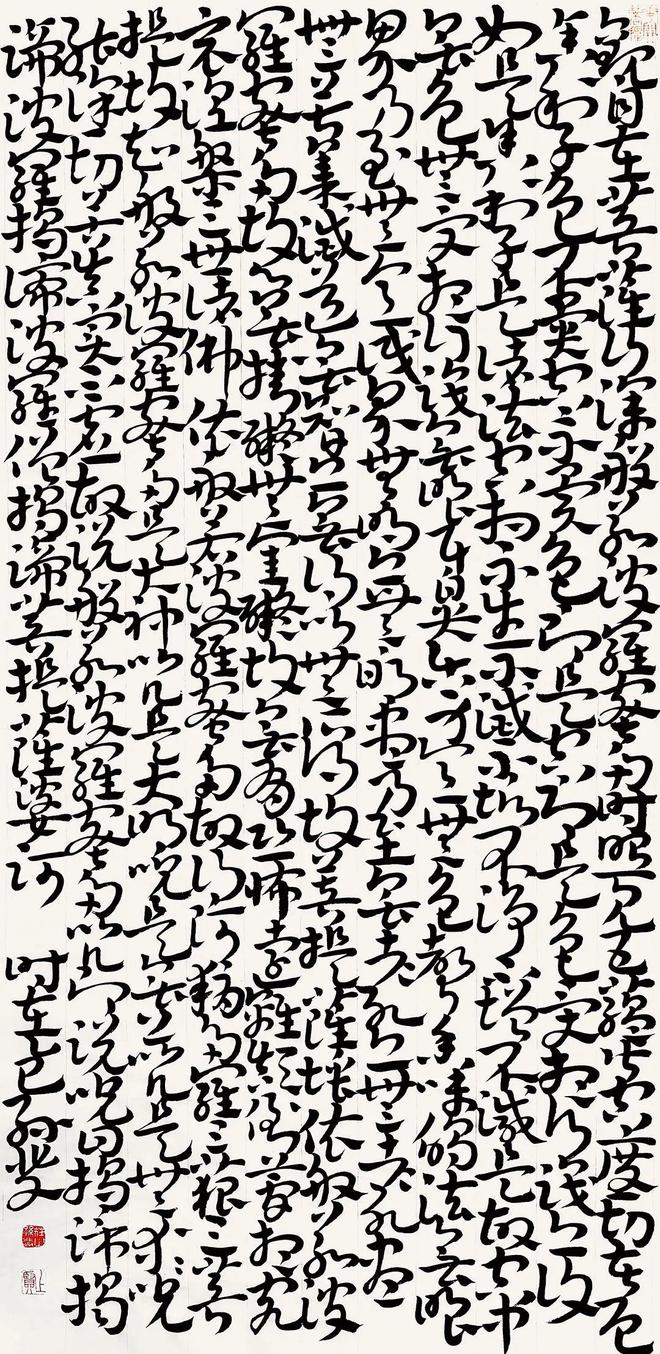 觀自在菩薩行深般若波羅蜜多時照見五蘊皆空度一切苦厄
舍利子色不異空空不異色色即是空空即是色受想行識亦復
如是舍利子是諸法空相不生不滅不垢不淨不增不減是故空中
無色無受想行識無眼耳鼻舌身意無色聲香味觸法無眼
界乃至無意識界無無明亦無無明盡乃至無老死亦無老死盡
無苦集滅道無智亦無得以無所得故菩提薩埵依般若波
羅蜜多故心無罣礙無罣礙故無有恐怖遠離顛倒夢想究
竟涅槃三世諸佛依般若波羅蜜多故得阿耨多羅三藐三菩
提故知般若波羅蜜多是大神咒是大明咒是無上咒是無等等咒
能除一切苦真實不虛故說般若波羅蜜多咒即說咒曰揭諦揭
諦波羅揭諦波羅僧揭諦菩提薩婆訶 時在乙巳